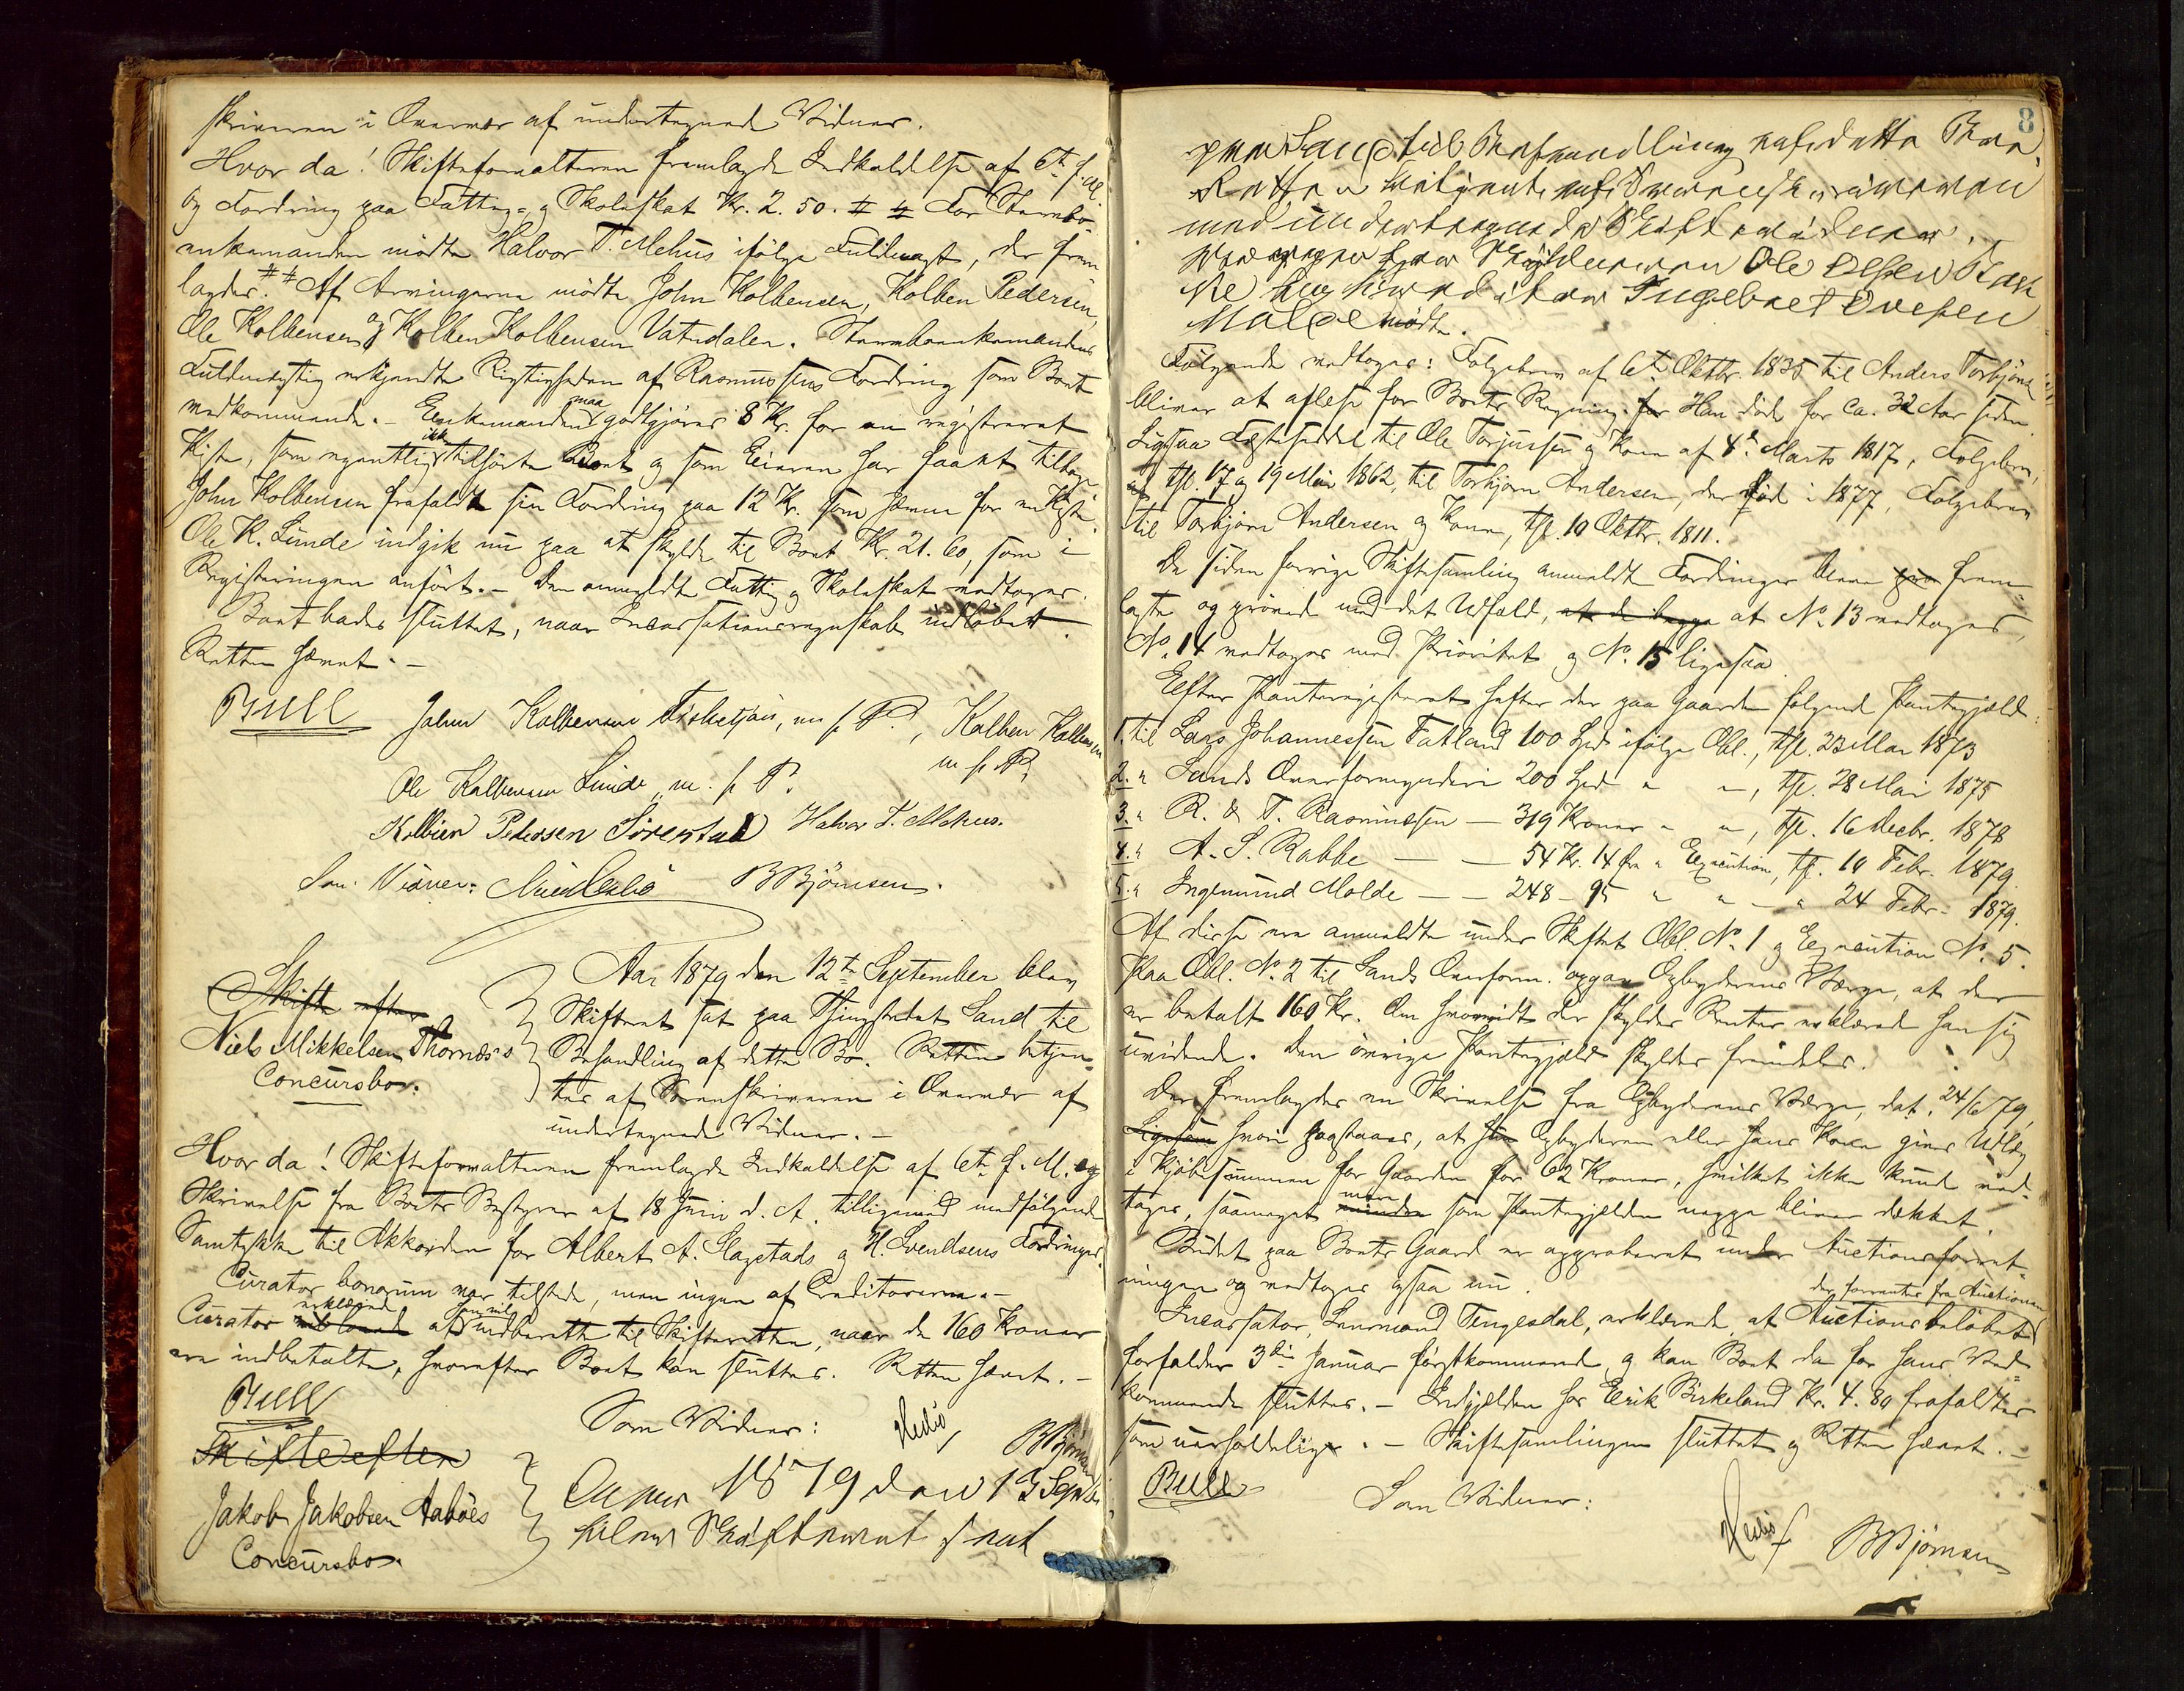 skriveren i Overvær af undertegnede Vidner.
Hvor da! Skifteforvalteren fremlagde Indkaldelse af 6te f. M.
og Fordring paa Fattig- og Skoleskat Kr. 2.50. # # For Stervbo-
enkemanden mødte Halvor T. Mehus ifølge Fuldmagt, der frem
lagdes. ## Af Arvingerne mødte John Kolbensen, Kolben Pedersen,
Ole Kolbensen og Kolben Kolbensen Vatndalen. Stervboenkemandens
Fuldmægtig erkjendte Rigtigheden af Rasmussens Fordring som Boet
vedkommende. – Enkemanden maa godtgjøres 8 Kr. for en registreret
Kiste, som egentlig ikke tilhørte Boet og som Eieren har faaet tilbage.
John Kolbensen frafaldt sin Fordring paa 12 Kr. som Hyre for en Kiste.
Ole K. Lunde indgik nu paa at skylde til Boet Kr. 21.60, som i
Registeringen anført. – Den anmeldte Fattig og Skoleskat vedtoges.
Boet bades sluttet, naar Incassationsregnskab indløbet.
Retten hævet. –
Bull
John Kolbensen Fisketjøn, m. f. P., Kolben Kolbensen
m. f. P.
Ole Kolbensen Lunde, m. f. P.
Kolbien Pedersen Sørestad Halvor T. Mehus.
Som Vidner: BBjörnsen.
Skifte efter
Niels Mikkelsen Thornæs's
Concursbo.
Aar 1879 den 12te September blev
Skifteret sat paa Thingstedet Sand til
Behandling af dette Bo. Retten betjen-
tes af Sorenskriveren i Overvær af
undertegnede Vidner. –
Hvor da! Skifteforvalteren fremlagde Indkaldelse af 6te f. M. og
Skrivelse fra Boets Bestyrer af 18 Juni d. A. tilligemed medfølgende
Samtykke til Akkorden for Albert A. Slagstads og H. Svendsens Fordringer.
Curator bonorum var tilstede, men ingen af Creditorerne. –
Curator erklærede at han vil indberette til Skifteretten, naar de 160 Kroner
ere indbetalte, hvorefter Boet kan sluttes. Retten hævet. –
Bull
Som Vidner: BBjörnsen
Skifte efter
Jakob Jakobsen Aabøes
Concursbo.
Aar 1879 den 13 Septbr
blev Skifteret sat
8
paa Sand til Behandling af dette Bo.
Retten betjent af Sorenskriveren
med undertegnede Skiftevidner.
Ole Olsen
Ingebret Ovesen
Molde mødte.
Følgende vedtoges: Folgebrev af 6te Oktbr. 1835 til Anders Torbjørns
bliver at aflese for Boets Regning. for Han døde for ca. 32 Aar siden.
Ligesaa Fæsteseddel til Ole Torjussen og Kone af 4de Marts 1817, Folgebrev,
tgl. 17 og 19 Mai 1862, til Torbjørn Andersen, der død i 1877, Folgebrev
til Torbjørn Andersen og Kone, tgl. 10 Oktbr. 1811.
De siden forrige Skiftesamling anmeldte Fordringer bleve frem-
lagte og prøvede med det Udfald, at de begge at No. 13 vedtoges,
No. 14 vedtoges med Prioritet og No. 15 ligesaa.
Efter Panteregisteret hefter der paa Gaarden følgende Pantegjæld:
1. til Lars Johannessen Fatland 100 Spd. ifølge Obl., tgl. 23 Mai 1873
2. " Sands Overformynderi 200 Spd. " ", tgl. 28 Mai 1875
3. " R. & T. Rasmussen – 319 Kroner " ", tgl. 16 Decbr. 1878
4. " A. S. Rabbe – – 54 Kr. 14 Øre " Execution, tgl. 10 Febr. 1879.
5. " Ingemund Molde – – 248 – 95 " " – " 24 Febr. 1879.
Af disse ere anmeldte under Skiftet Obl. No. 1 og Execution No. 5.
Paa Obl. No. 2 til Sands Overform. opgav Opbyderens Værge, at der
er betalt 160 Kr. Om hvorvidt der skyldes Renter erklærede han sig
uvidende. Den øvrige Pantegjæld skyldes fremdeles.
Der fremlagdes en Skrivelse fra Opbyderens Værge, dat. 24/6 79,
Ligesom hvori paastaaes, at Opbyderen eller hans Kone gives Udlæg
i Kjøbesummen for Gaarden for 62 Kroner, hvilket ikke kunde ved-
tages, saameget mere mindre som Pantegjælden neppe bliver dækket.
Budet paa Boets Gaard er approberet under Auctionsforret-
ningen og vedtages ogsaa nu.
Incassator, Lensmand Tengesdal, erklærede at Auctionsbeløbet der forrentes fra Auctionen
forfalder 3die Januar førstkommende og kan Boet da for hans Ved-
kommende sluttes. – Indgjælden hos Eerik Birkeland Kr. 4.80 frafaldtes
som uerholdelig. – Skiftesamlingen sluttet og Retten hævet. –
Bull
Som Vidner:
BBjörnsen